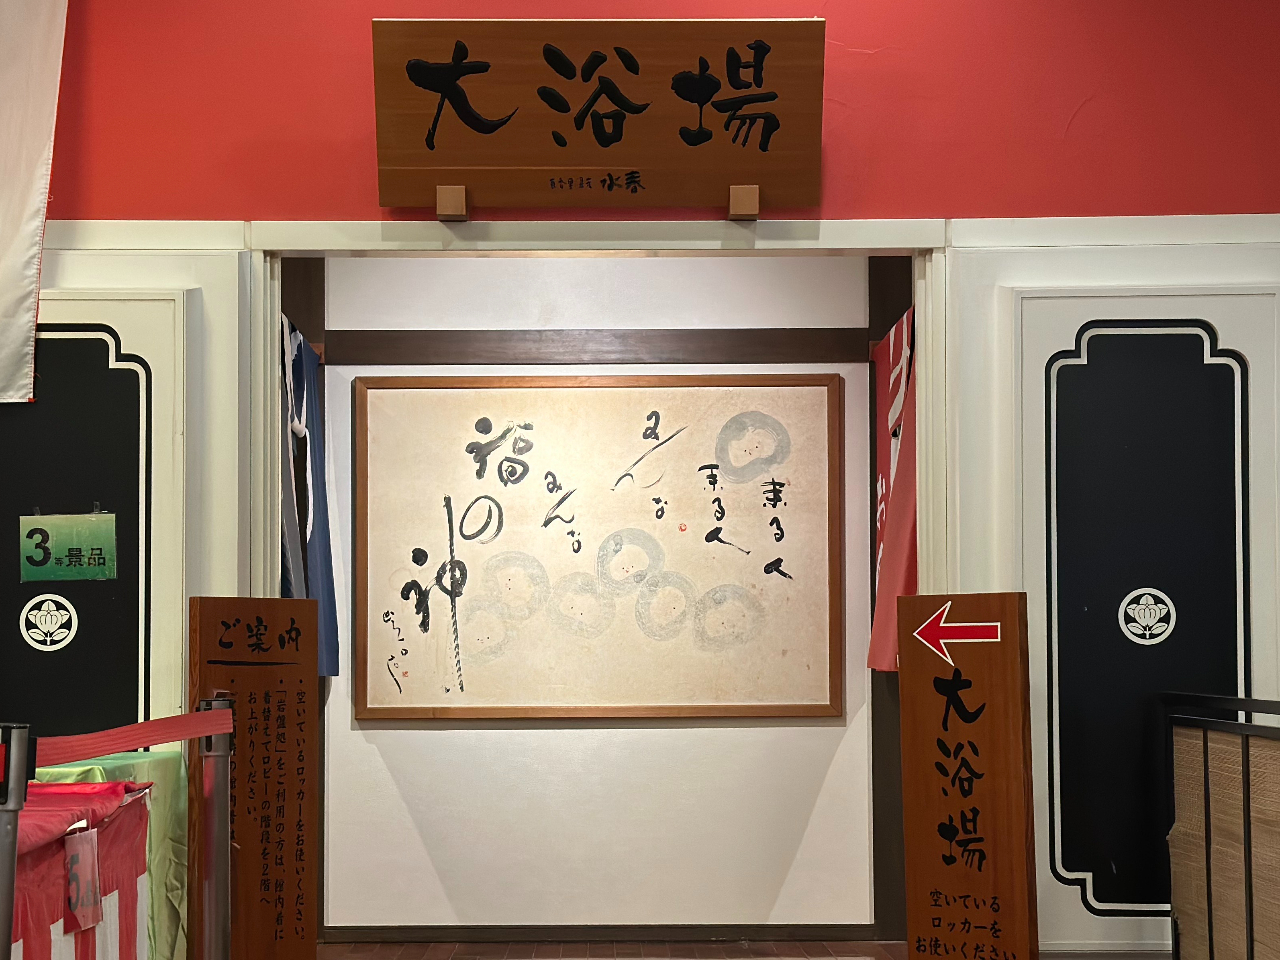 大浴場
水春
来る人
来る人
みんな
みんな
福の神
3等景品
ご案内
・空いているロッカーをお使いください。
・「岩盤処」をご利用の方は、館内着に
着替えてロビーの階段を2階へ
お上がりください。
大浴場
空いている
ロッカーを
お使いください
5